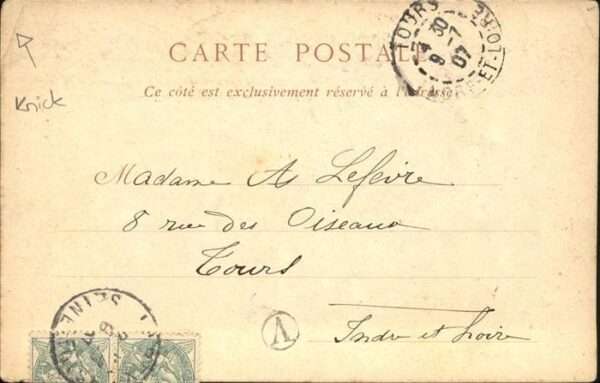 Knick
CARTE POSTALE
Ce côté est exclusivement réservé à l'adresse
TOURS
INDRE-ET-LOIRE
Madame As Lefevre
8 rue des Oiseaux
Tours
Indre et Loire
A
SEINE